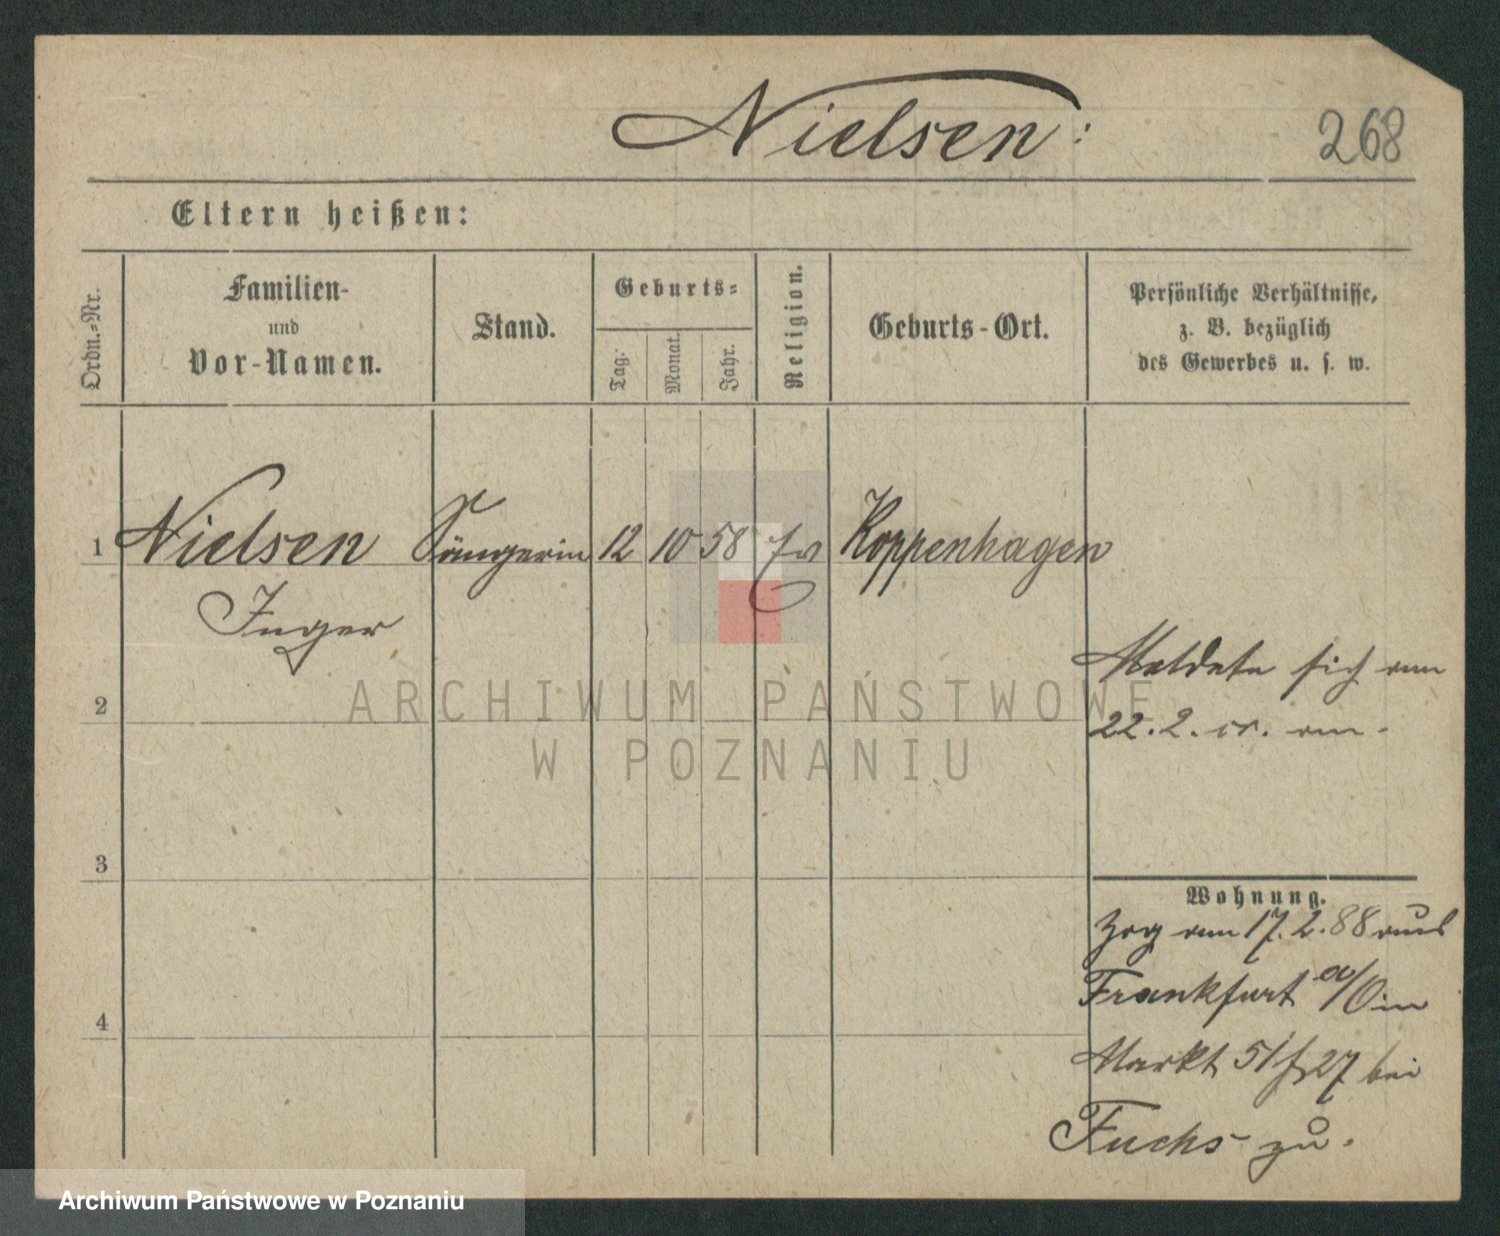 Nielsen:
268
Eltern heißen:
Ordn.-Nr.
Familien-
und
Vor-Namen.
Stand.
Geburts-
Tag.
Monat.
Jahr.
Religion.
Geburts-Ort.
Persönliche Verhältnisse,
z. B. bezüglich
des Gewerbes u. s. w.
1 Nielsen Sängerin 12 10 58 Koppenhagen
Inger
Meldete sich am
2
22. 2. cr. an.
3
Wohnung.
Zog am 17. 2. 88 aus
Frankfurt a/O in
4
Markt 51 27 bei
Fuchs zu.
ARCHIWUM PAŃSTWOWE
W POZNANIU
Archiwum Państwowe w Poznaniu